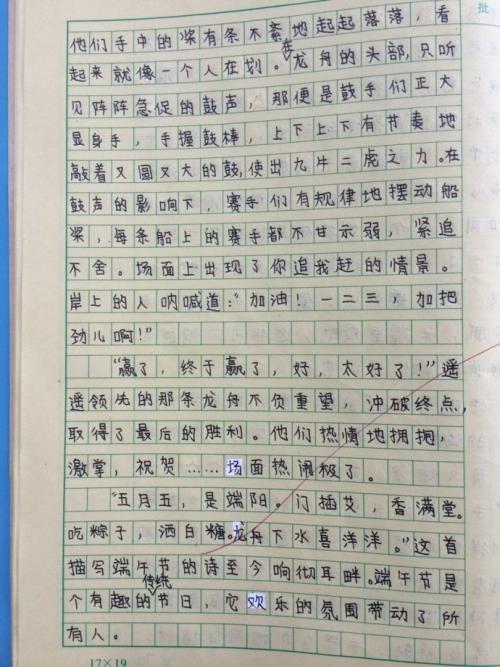 批
他们手中的桨有条不紊地起起落落，看
起来就像一个人在划。在龙舟的头部，只听
见阵阵急促的鼓声，那便是鼓手们正大
显身手，手握鼓棒，上下上下有节奏地
敲着又圆又大的鼓，使出九牛二虎之力。在
鼓声的影响下，赛手们有规律地摆动船
桨，每条船上的赛手都不甘示弱，紧追
不舍。场面上出现了你追我赶的情景。
岸上的人呐喊道："加油！一二三，加把
劲儿啊！"
"赢了，终于赢了，好，太好了！"遥
遥领先的那条龙舟不负重望，冲破终点，
取得了最后的胜利。他们热情地拥抱，
激掌，祝贺……场面热闹极了。
"五月五，是端阳。门插艾，香满堂。
吃粽子，洒白糖。龙舟下水喜洋洋。"这首
描写端午节的诗至今响彻耳畔。端午节是
个有趣的传统节日，它欢乐的氛围带动了所
有人。
17×19